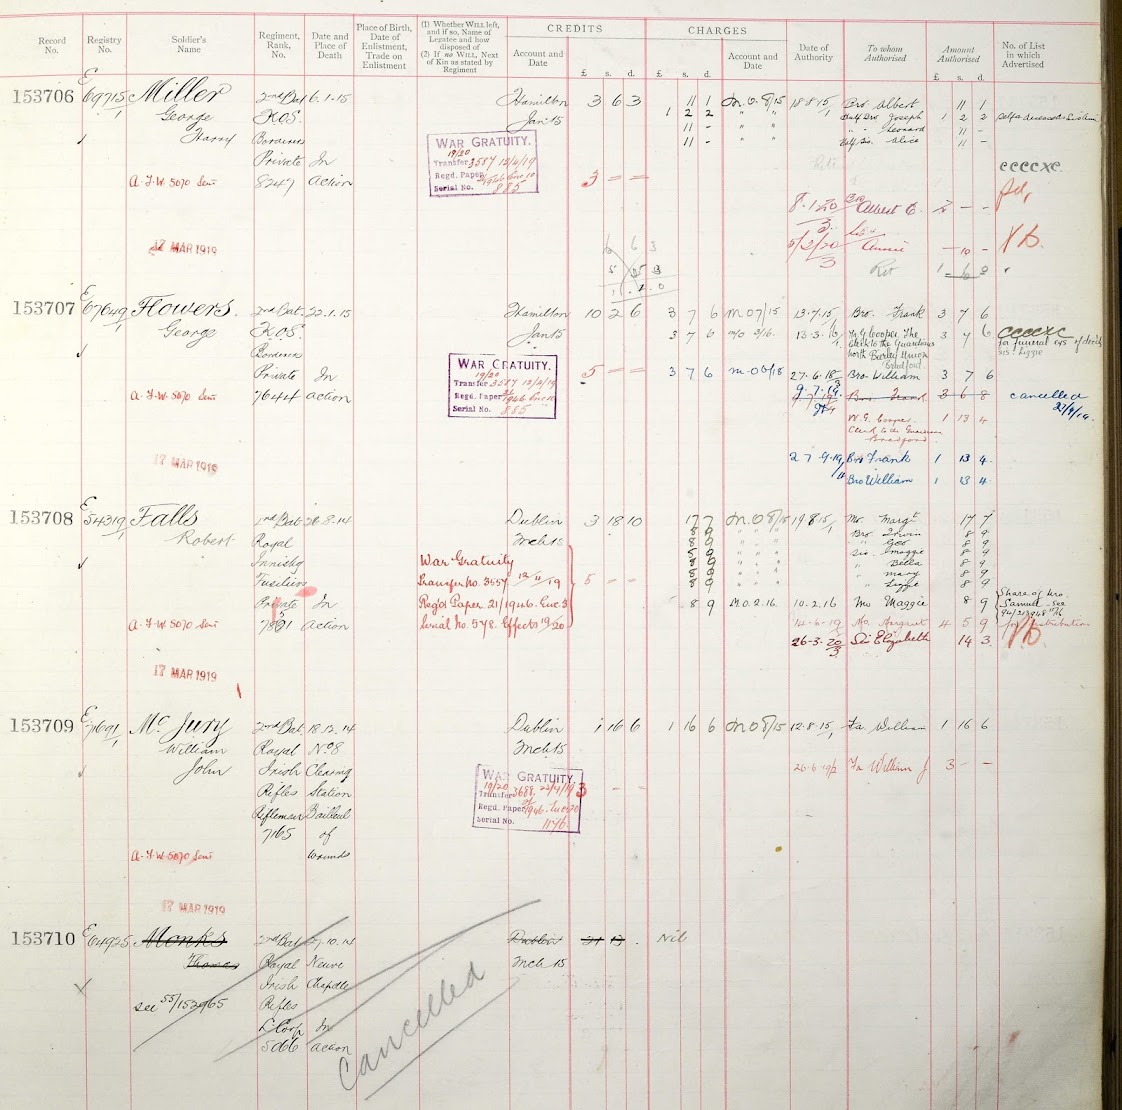 Record No.
Registry No.
Soldier's Name
Regiment, Rank, No.
Date and Place of Death
Place of Birth, Date of Enlistment, Trade on Enlistment
(1) Whether WILL left, and if so, Name of Legatee and how disposed of
(2) If no WILL, Next of Kin as stated by Regiment
CREDITS
Account and Date
£ s. d.
CHARGES
£ s. d.
Account and Date
Date of Authority
To whom Authorised
Amount Authorised
£ s. d.
No. of List in which Advertised
153706 E 69715/1 Miller 2nd Bat 6.1.15 Hamilton 3 6 3 11 1 18.8.15 Bro Albert 11 1
George KOS Jan 15 1 2 2 " " Half Bro Joseph 1 2 2
Harry Borderers 11 - " " Leonard 11 -
Private In 11 - Half Sis. Alice 11 -
WAR GRATUITY.
19/20
Transfer 3587 12/4/19
Regd. Paper
Serial No. 885
A.F.W. 5070 Sent 8247 Action 3 - -
8.1.20 Albert
Annie - 10 -
17 MAR 1919
153707 E 67649/1 Flowers 2nd Bat 22.1.15 Hamilton 10 2 6 3 7 6 M 07/15 13.7.15 Bro. Frank 3 7 6
George KOS Jan 15 3 7 6 M/o 3/16 Cooper The
Clerk to the Guardians
North Bierley Union
Bradford
Borderers
Private In 3 7 6 27.6.18 Bro William 3 7 6
WAR GRATUITY.
19/20
Transfer 3587 12/4/19
Regd. Paper
Serial No. 885
5 - -
A.F.W. 5070 Sent 7644 Action Bro Frank 3 6 8 cancelled
W.G. Cooper 1 13 4
Clerk to the Guardians
Bradford
17 MAR 1919
27.9.19 Bro Frank 1 13 4
Bro William 1 13 4
153708 E 54319/1 Falls Bat 8.14 Dublin 3 18 10 17 7 19 8 15 Mo. Margt 17 7
Robert Royal Mch 15 8 9 Bro. Irwin 8 9
Innisklg 8 9 " Geo 8 9
Fusiliers 8 9 Sis. Maggie 8 9
8 9 " Bella 8 9
8 9 " Mary 8 9
8 9 " Lizzie 8 9
War Gratuity
Transfer No. 3557 12/11/19
Reg'd Paper 21/1946. Enc. 3
Serial No. 578. Effects 19/20
5 - -
Private In 8 9 M.0.2.16. 10.2.16 Mo Maggie 8 9
Share of bro. Samuel see
for distribution
A.F.W. 5070 Sent Action 14-6-19 Mo. Margaret 4 5 9
26-3-20 Sis Elizabeth 14 3
17 MAR 1919
153709 E 71691/1 McJury 2nd Bat 18.12.14 Dublin 1 16 6 1 16 6 12.8.15 Fa. William 1 16 6
William Royal No 8 Mch 15
John Irish Clearing 26-6-19 Fa William J 3 - -
Rifles Station
Rifleman Bailleul
7165 of
Wounds
WAR GRATUITY.
19/20
Transfer 3688
Regd. Paper
Serial No.
3 - -
A.F.W. 5070 Sent
17 MAR 1919
153710 E 64925 Monks 2nd Bat 10.14 Dublin 21 13 . Nil
Thomas Royal Neuve Mch 15
Irish Chapelle
see 55/152965 Rifles
L Corp In
5066 Action
Cancelled